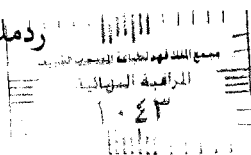 ردمك
مجمع الملك فهد لطباعة المصحف الشريف
المراقبة النهائية
١٠٤٣